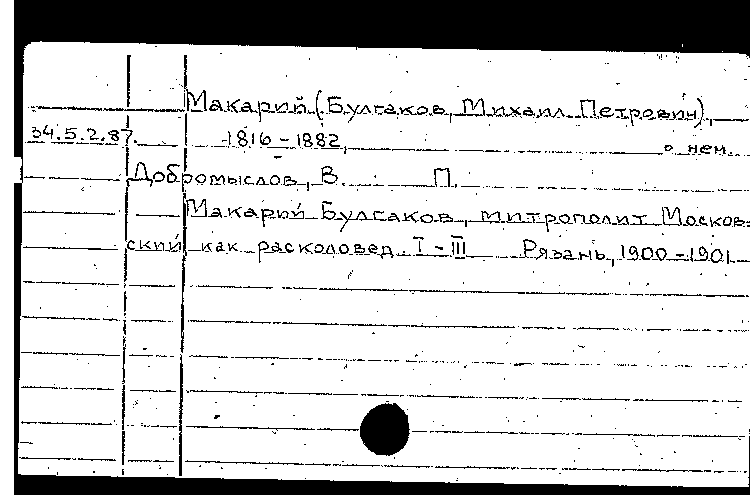 Макарий (Булгаков, Михаил Петрович),
34.5.2.87. 1816-1882, о нем.
Добромыслов, В. П.
Макарий Булгаков, митрополит Москов-
ский как расколовед. I-III Рязань, 1900-1901